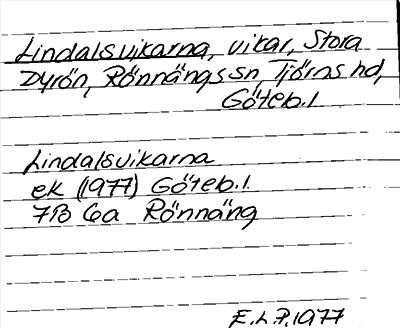 Lindalsvikarna, vikar, Stora
Dyrön, Rönnängs sn, Tjörns hd,
Göteb.l
Lindalsvikarna
ek (1977) Göteb.l.
7B 6a Rönnäng
E.L.P. 1977